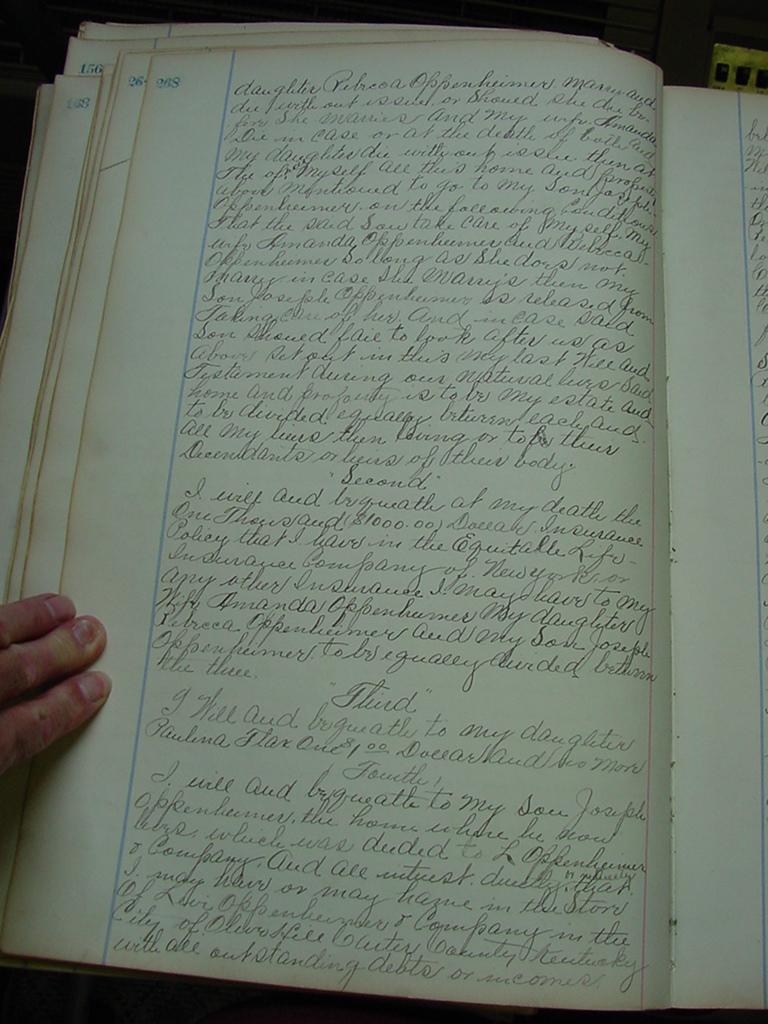 156
268
268
168
daughter Rebecca Oppenheimer. Marry and
die with out issue. or Should she die be-
fore She marries and My wife Amanda
Die in case or at the death of both and
My daughter die with out issue then at
The of Myself all this home and property
above Mentioned to go to My Son Joseph
Oppenheimer. on the following Conditions
That the said Son take care of Myself. My
wife Amanda Oppenheimer and Rebecca
Oppenheimer So long as She does not.
Marry in case She Marry's then My
Son Joseph Oppenheimer is released from
Taking care of her. And in case said
Son should fail to look after us as
above set out in this My last Will and
Testament during our Natural lives Said
home and property is to be My estate and
to be divided equally between each and
all My heirs then living or to be their
Decendants or heirs of their body.
"Second"
I will and bequeath at my death the
One Thousand ($1000.00) Dollar Insurance
Policy that I have in the Equitable Life-
Insurance Company of New York, or
any other Insurance I may have to my
Wife Amanda Oppenheimer My daughter
Rebecca Oppenheimer and My Son Joseph
Oppenheimer. to be equally divided between
the three.
"Third"
I Will and bequeath to my daughter
Paulina Flax One $1.00 Dollar and no more
Fourth,
I will and bequeath to My Son Joseph
Oppenheimer. the home where he now
lives. which was deeded to L Oppenheimer
& Company. And all interest. directly or that
I may have or may have in the Store
Of Levi Oppenheimer & Company in the
City of Olive Hill Carter County Kentucky
with all outstanding debts or incomes.